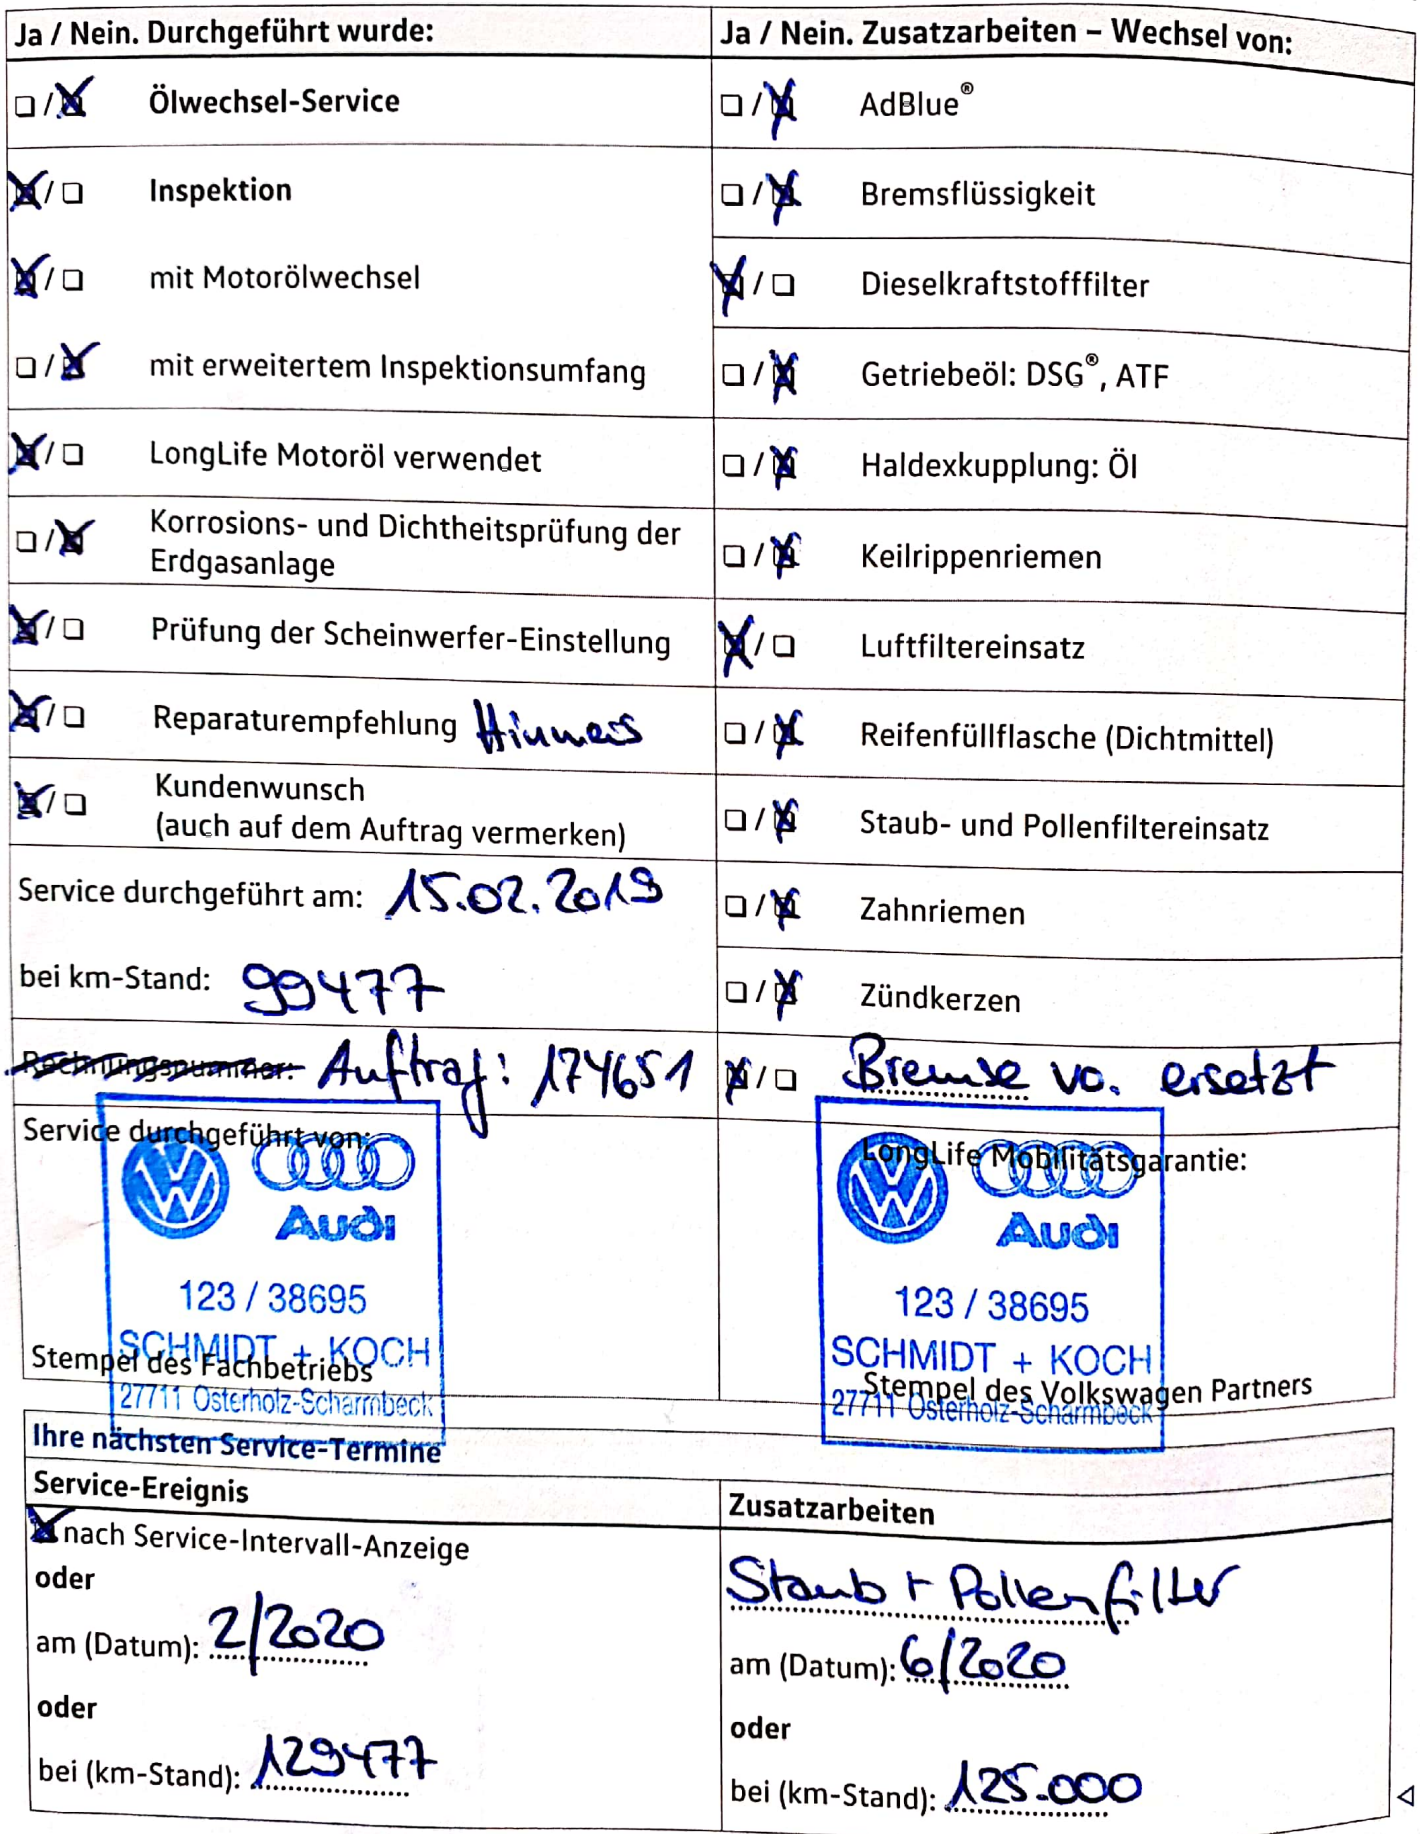 Ja / Nein. Durchgeführt wurde:
Ölwechsel-Service
Inspektion
mit Motorölwechsel
mit erweitertem Inspektionsumfang
LongLife Motoröl verwendet
Korrosions- und Dichtheitsprüfung der
Erdgasanlage
Prüfung der Scheinwerfer-Einstellung
Reparaturempfehlung
Kundenwunsch
(auch auf dem Auftrag vermerken)
Service durchgeführt am: 15.02.2019
bei km-Stand: 99477
Rechnungsnummer: Auftrag: 174651
Service durchgeführt von:
Audi
123 / 38695
SCHMIDT + KOCH
Stempel des Fachbetriebs
27711 Osterholz-Scharmbeck
Ja / Nein. Zusatzarbeiten – Wechsel von:
AdBlue®
Bremsflüssigkeit
Dieselkraftstofffilter
Getriebeöl: DSG®, ATF
Haldexkupplung: Öl
Keilrippenriemen
Luftfiltereinsatz
Reifenfüllflasche (Dichtmittel)
Staub- und Pollenfiltereinsatz
Zahnriemen
Zündkerzen
Bremse vo. ersetzt
LongLife Mobilitätsgarantie:
Audi
123 / 38695
SCHMIDT + KOCH
Stempel des Volkswagen Partners
27711 Osterholz-Scharmbeck
Ihre nächsten Service-Termine
Service-Ereignis
nach Service-Intervall-Anzeige
oder
am (Datum): 2/2020
oder
bei (km-Stand): 129477
Zusatzarbeiten
Staub + Pollenfilter
am (Datum): 6/2020
oder
bei (km-Stand): 125.000